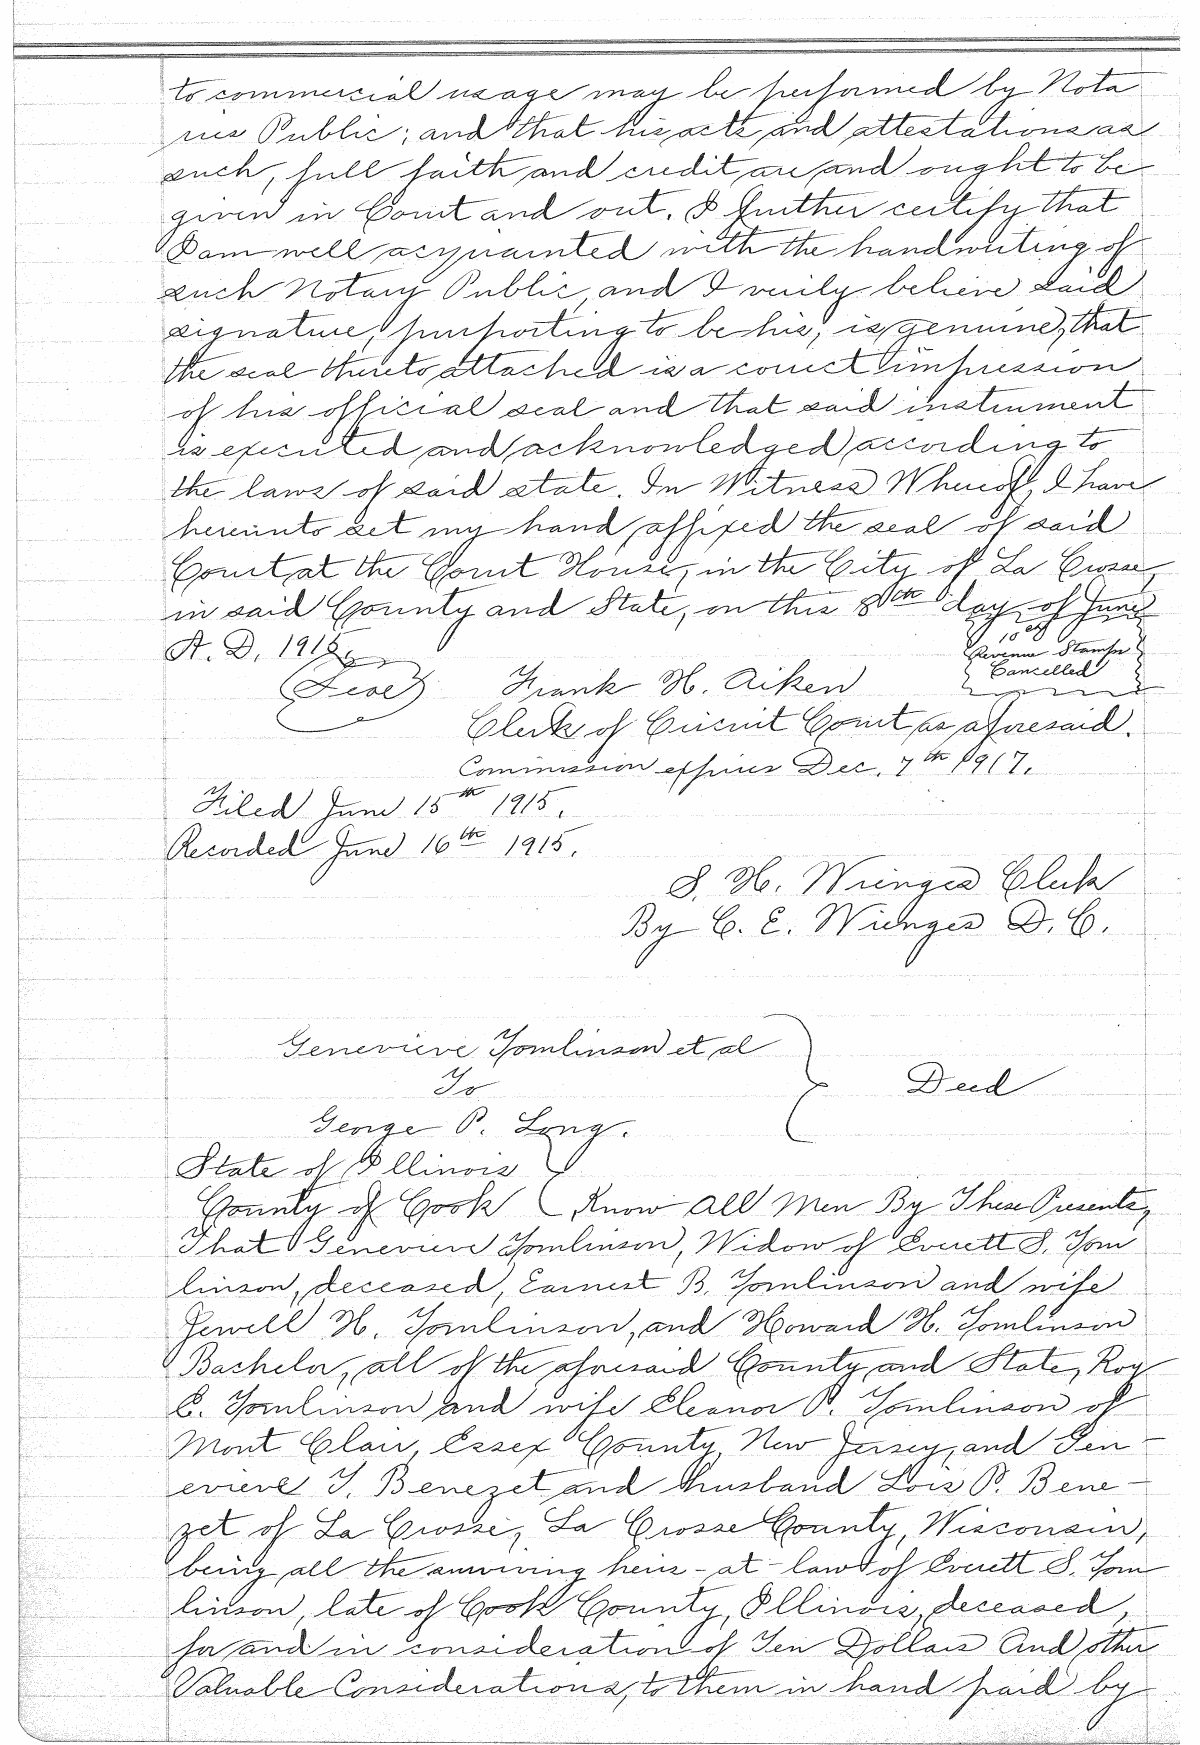 to commercial usage may be performed by Nota
ries Public; and that his acts and attestations as
such, full faith and credit are and ought to be
given in Court and out. I further certify that
I am well acquainted with the handwriting of
such Notary Public, and I verily believe said
signature, purporting to be his, is genuine, that
the seal thereto attached is a correct impression
of his official seal and that said instrument
is executed and acknowledged according to
the laws of said state. In Witness Whereof, I have
hereunto set my hand affixed the seal of said
Court, at the Court House, in the City of La Crosse,
in said County and State, on this 8th day of June
A. D. 1915.
10 cts
Revenue Stamps
Cancelled
(Seal)
Frank H. Aiken
Clerk of Circuit Court as aforesaid.
Commission expires Dec. 7th 1917.
Filed June 15th 1915.
Recorded June 16th 1915.
S. H. Wienges Clerk
By C. E. Wienges D. C.
Genevieve Tomlinson et al
To
Deed
George P. Long.
State of Illinois
County of Cook Know All Men By These Presents,
That Genevieve Tomlinson, Widow of Everett S. Tom
linson, deceased, Earnest B. Tomlinson and wife
Jewell H. Tomlinson, and Howard H. Tomlinson
Bachelor, all of the aforesaid County and State, Roy
E. Tomlinson and wife Eleanor P. Tomlinson of
Mont Clair, Essex County, New Jersey, and Gen-
evieve T. Benezet and husband Lois P. Bene-
zet of La Crosse, La Crosse County, Wisconsin,
being all the surviving heirs-at-law of Everett S. Tom
linson, late of Cook County, Illinois, deceased,
for and in consideration of Ten Dollars And other
Valuable Considerations, to them in hand paid by